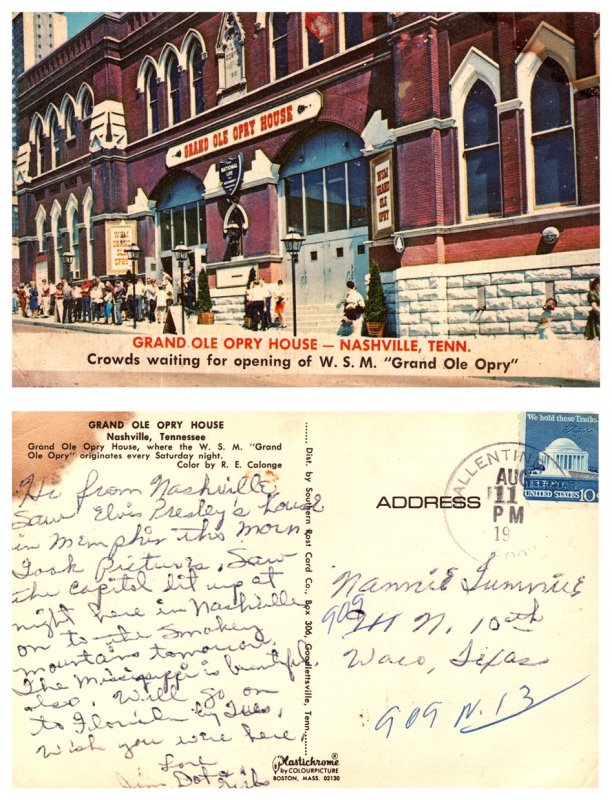 GRAND OLE OPRY HOUSE
NATIONAL LIFE
WSM GRAND OLE OPRY
WSM GRAND OLE OPRY
GRAND OLE OPRY HOUSE — NASHVILLE, TENN.
Crowds waiting for opening of W. S. M. "Grand Ole Opry"
GRAND OLE OPRY HOUSE
Nashville, Tennessee
Grand Ole Opry House, where the W. S. M. "Grand
Ole Opry" originates every Saturday night.
Color by R. E. Calonge
Hi from Nashville,
Saw Elvis Presley's house
in Memphis this morn
Took Pictures, Saw
the Capitol lit up at
night here in Nashville
on to the Smokey
Mountains tomorrow.
The Mississippi is beautiful
also, Will go on
to Florida by Tues,
Wish you were here,
Love
Jim Dot
Dist. by Southern Post Card Co., Box 306, Goodlettsville, Tenn.
Plastichrome
by COLOURPICTURE
BOSTON, MASS. 02130
ADDRESS
We hold these Truths...
UNITED STATES 10c
AUG
11
PM
19
Nannie
909
N. 10th
Waco, Texas
909 N. 13